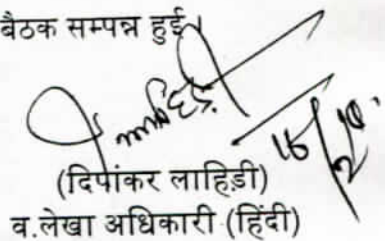 बैठक सम्पन्न हुई।
(दिपांकर लाहिड़ी)
व.लेखा अधिकारी (हिंदी)